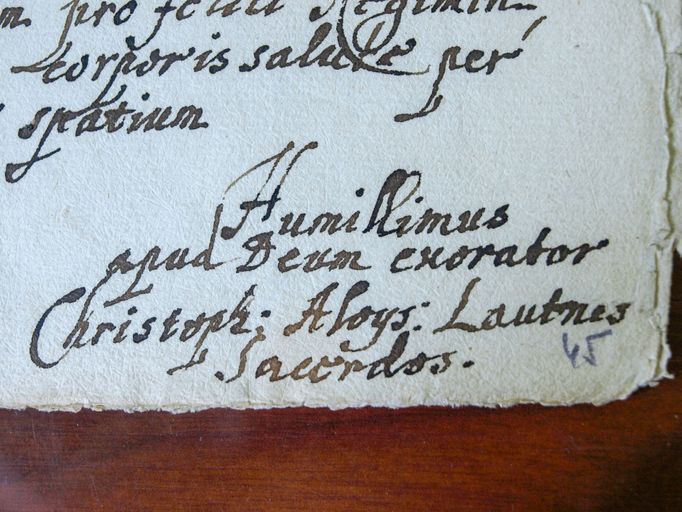 pro felici Regimin
corporis salute per
spatium
Humillimus
apud Deum exorator
Christoph: Aloys: Lautnes
Sacerdos.
45